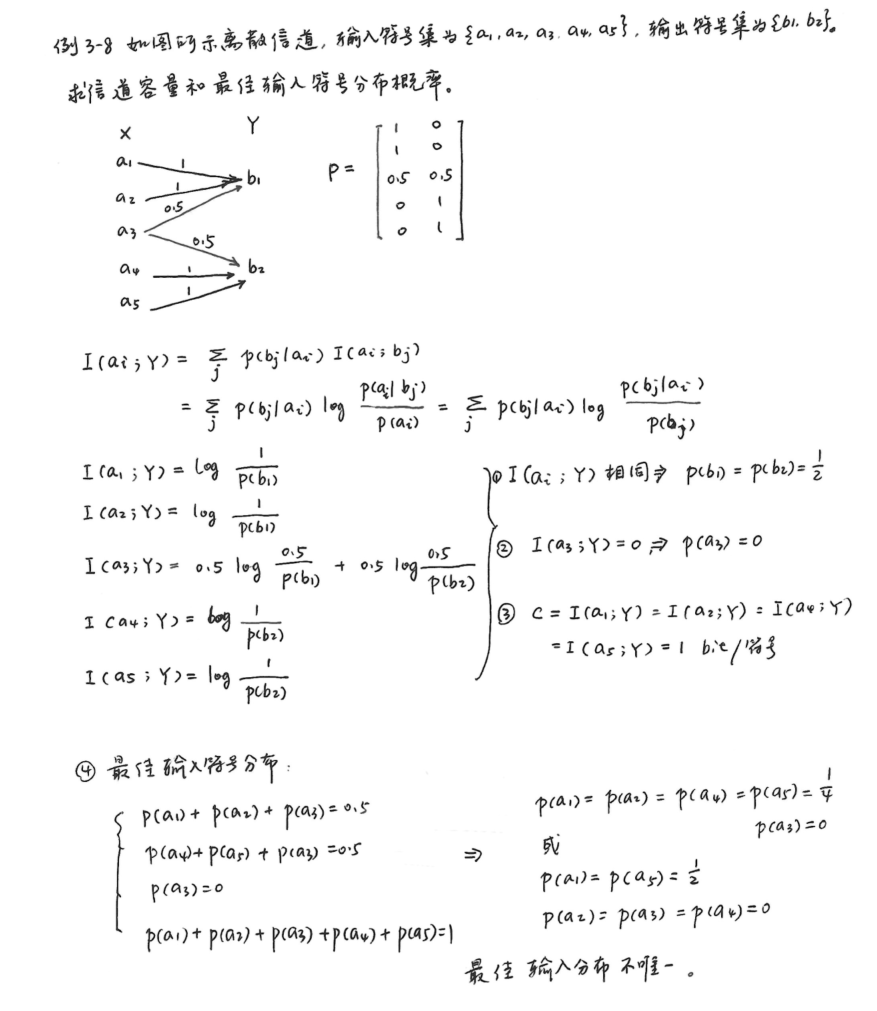 例3-8 如图所示离散信道, 输入符号集为{a₁, a₂, a₃, a₄, a₅}, 输出符号集为{b₁, b₂}。
求信道容量和最佳输入符号分布概率。
X Y
a₁ 1
a₂ 1 b₁
0.5
a₃ 0.5
a₄ 1 b₂
a₅ 1
P = [
1 0
1 0
0.5 0.5
0 1
0 1
]
I(aᵢ;Y) = Σⱼ p(bⱼ|aᵢ) I(aᵢ;bⱼ)
= Σⱼ p(bⱼ|aᵢ) log p(aᵢ|bⱼ)/p(aᵢ) = Σⱼ p(bⱼ|aᵢ) log p(bⱼ|aᵢ)/p(bⱼ)
I(a₁;Y) = log 1/p(b₁)
I(a₂;Y) = log 1/p(b₁)
I(a₃;Y) = 0.5 log 0.5/p(b₁) + 0.5 log 0.5/p(b₂)
I(a₄;Y) = log 1/p(b₂)
I(a₅;Y) = log 1/p(b₂)
① I(aᵢ;Y) 相同 ⇒ p(b₁) = p(b₂) = 1/2
② I(a₃;Y) = 0 ⇒ p(a₃) = 0
③ C = I(a₁;Y) = I(a₂;Y) = I(a₄;Y)
= I(a₅;Y) = 1 bit/符号
④ 最佳输入符号分布:
p(a₁) + p(a₂) + p(a₃) = 0.5
p(a₄) + p(a₅) + p(a₃) = 0.5
p(a₃) = 0
p(a₁) + p(a₂) + p(a₃) + p(a₄) + p(a₅) = 1
⇒
p(a₁) = p(a₂) = p(a₄) = p(a₅) = 1/4
p(a₃) = 0
或
p(a₁) = p(a₅) = 1/2
p(a₂) = p(a₃) = p(a₄) = 0
最佳输入分布不唯一。